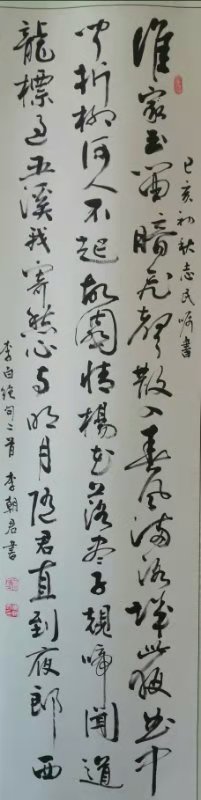 己亥初秋志民嘱書
誰家玉笛暗飛聲散入春風滿洛城此夜曲中
聞折柳何人不起故園情楊花落尽子規啼聞道
龍標過五溪我寄愁心与明月隨君直到夜郎西
李白絶句二首 李朝君書